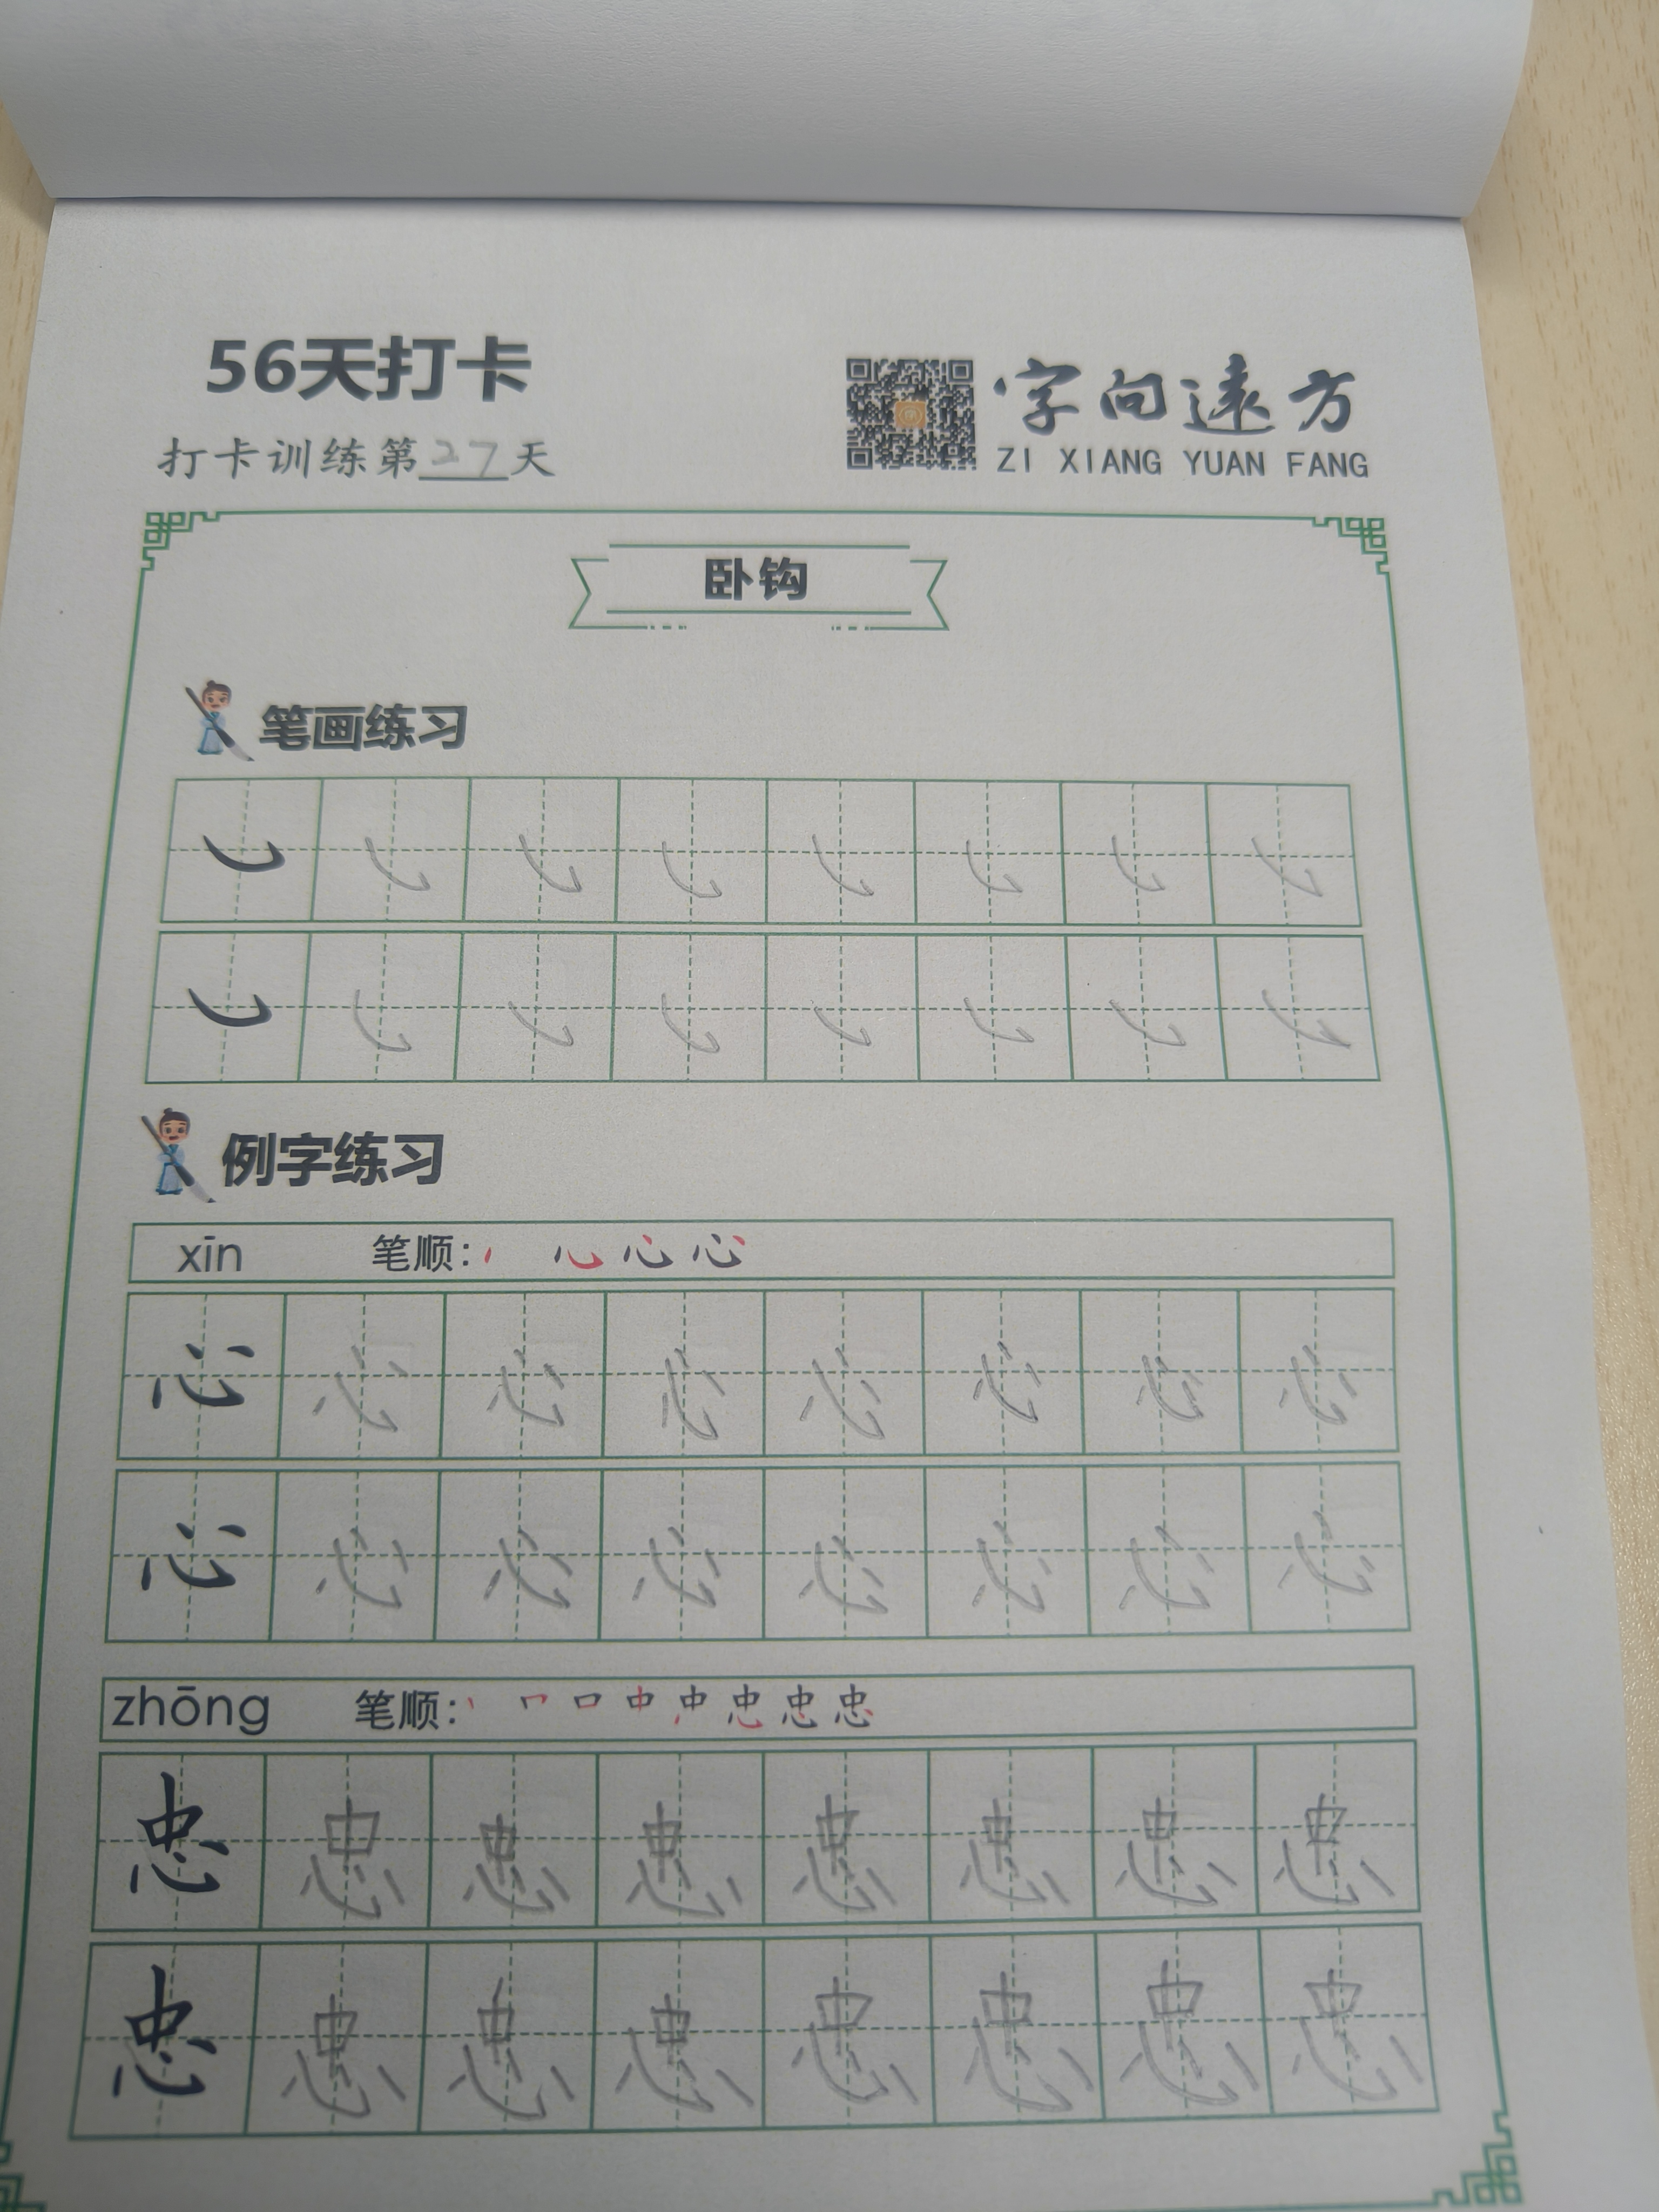 56天打卡
打卡训练第27天
字向遠方
ZI XIANG YUAN FANG
卧钩
笔画练习
例字练习
xīn 笔顺: 心
心 心 心 心 心 心 心 心
心 心 心 心 心 心 心 心
zhōng 笔顺: 丨 𠃍 口 中 忠 忠 忠
忠 忠 忠 忠 忠 忠 忠 忠
忠 忠 忠 忠 忠 忠 忠 忠